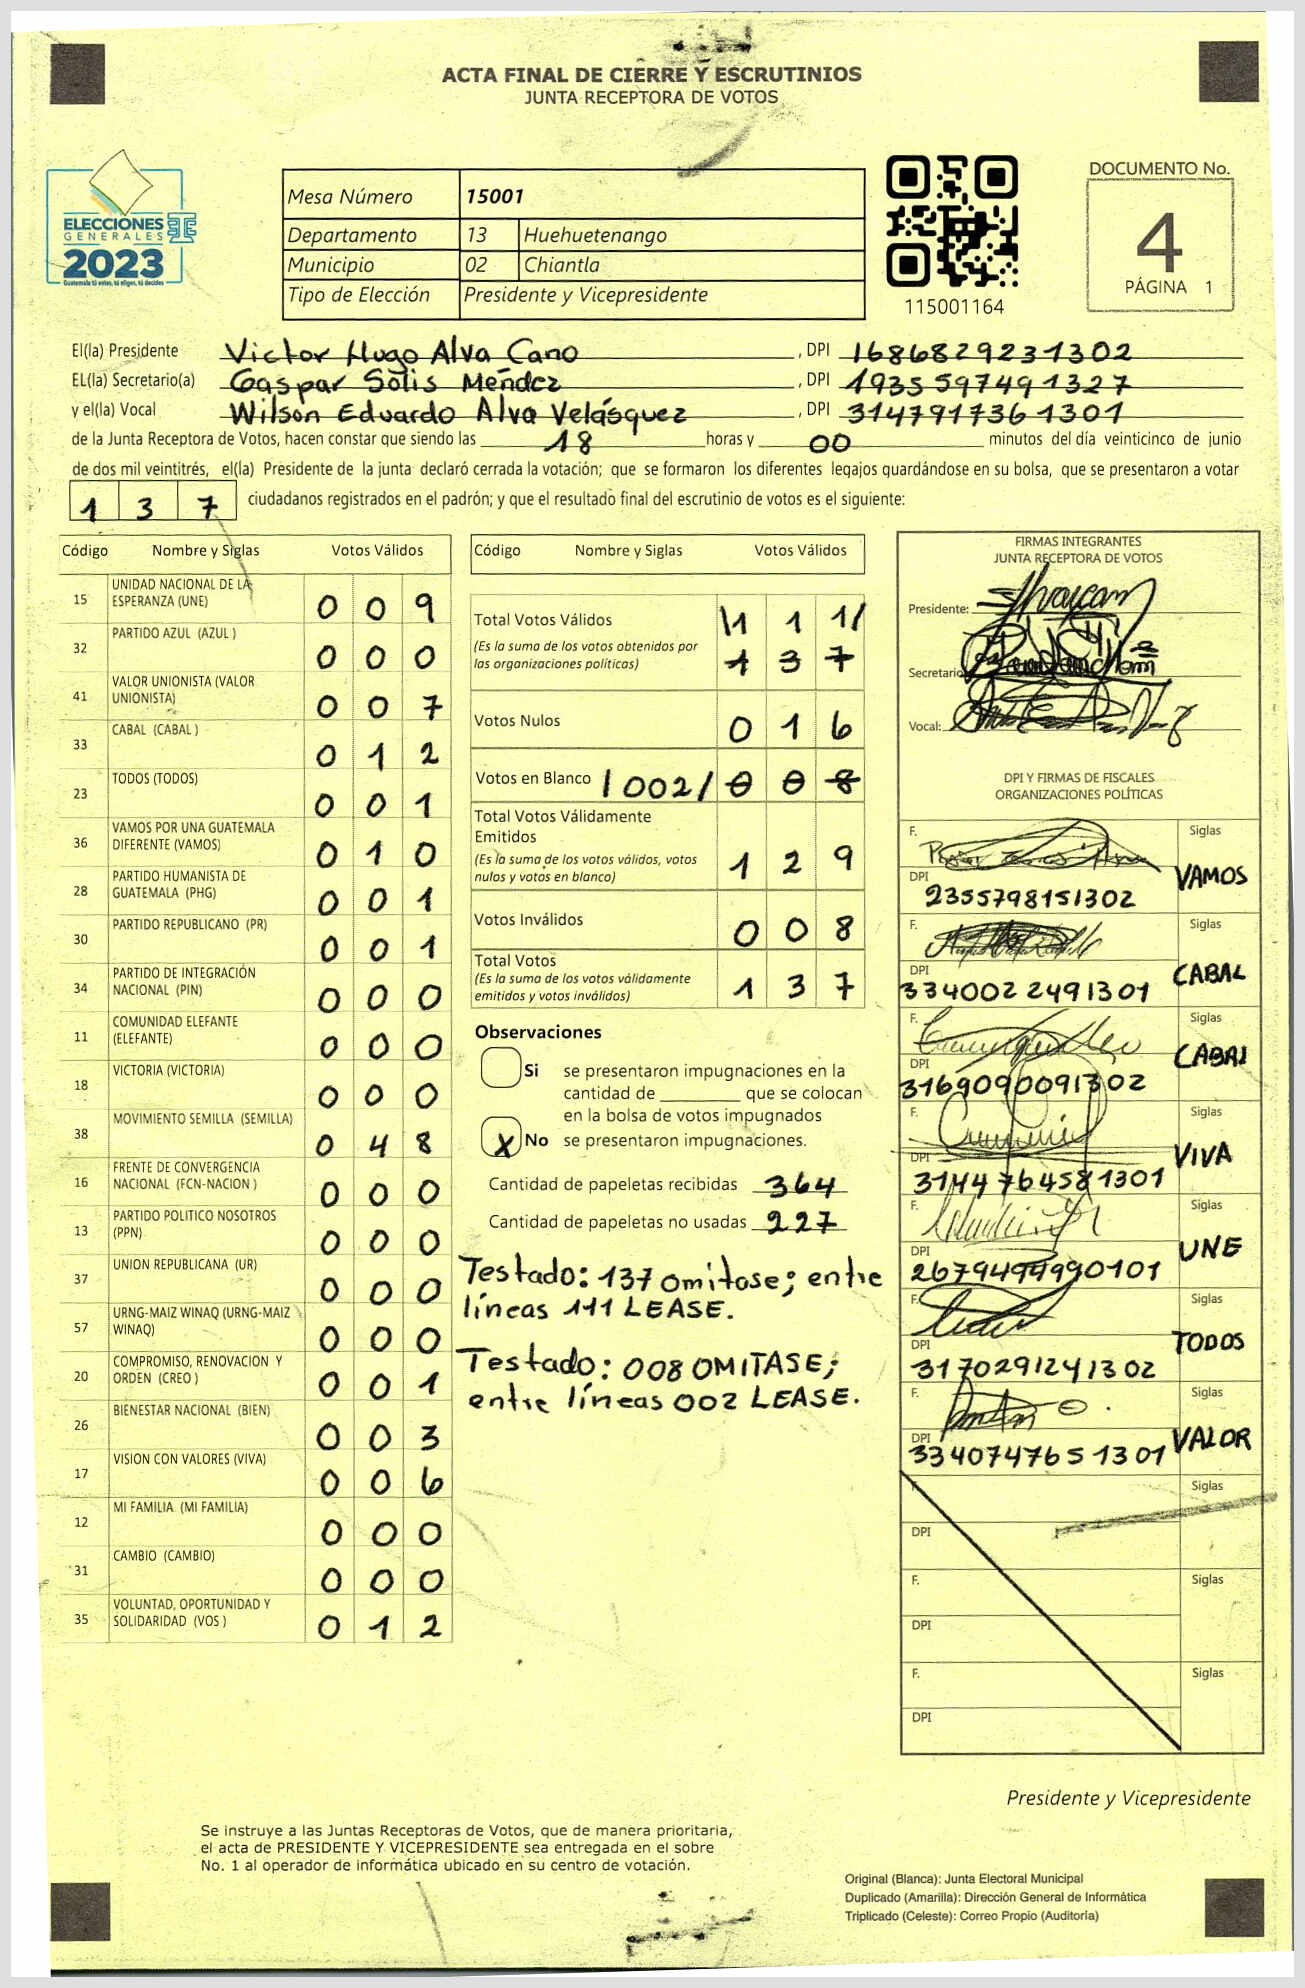 ACTA FINAL DE CIERRE Y ESCRUTINIOS
JUNTA RECEPTORA DE VOTOS
ELECCIONES
GENERALES
2023
Guatemala tú votas, tú eliges, tú decides
Mesa Número 15001
Departamento 13 Huehuetenango
Municipio 02 Chiantla
Tipo de Elección Presidente y Vicepresidente
115001164
DOCUMENTO No.
4
PÁGINA 1
El(la) Presidente Victor Hugo Alva Cano, DPI 1686829231302
EL(la) Secretario(a) Gaspar Solis Méndez, DPI 1935597491327
y el(la) Vocal Wilson Eduardo Alva Velásquez, DPI 3147917361301
de la Junta Receptora de Votos, hacen constar que siendo las 18 horas y 00 minutos del día veinticinco de junio
de dos mil veintitrés, el(la) Presidente de la junta declaró cerrada la votación; que se formaron los diferentes legajos guardándose en su bolsa, que se presentaron a votar
1 3 7 ciudadanos registrados en el padrón; y que el resultado final del escrutinio de votos es el siguiente:
Código Nombre y Siglas Votos Válidos
15 UNIDAD NACIONAL DE LA
ESPERANZA (UNE) 0 0 9
32 PARTIDO AZUL (AZUL ) 0 0 0
41 VALOR UNIONISTA (VALOR
UNIONISTA) 0 0 7
33 CABAL (CABAL ) 0 1 2
23 TODOS (TODOS) 0 0 1
36 VAMOS POR UNA GUATEMALA
DIFERENTE (VAMOS) 0 1 0
28 PARTIDO HUMANISTA DE
GUATEMALA (PHG) 0 0 1
30 PARTIDO REPUBLICANO (PR) 0 0 1
34 PARTIDO DE INTEGRACIÓN
NACIONAL (PIN) 0 0 0
11 COMUNIDAD ELEFANTE
(ELEFANTE) 0 0 0
18 VICTORIA (VICTORIA) 0 0 0
38 MOVIMIENTO SEMILLA (SEMILLA) 0 4 8
16 FRENTE DE CONVERGENCIA
NACIONAL (FCN-NACION ) 0 0 0
13 PARTIDO POLITICO NOSOTROS
(PPN) 0 0 0
37 UNION REPUBLICANA (UR) 0 0 0
57 URNG-MAIZ WINAQ (URNG-MAIZ
WINAQ) 0 0 0
20 COMPROMISO, RENOVACION Y
ORDEN (CREO ) 0 0 1
26 BIENESTAR NACIONAL (BIEN) 0 0 3
17 VISION CON VALORES (VIVA) 0 0 6
12 MI FAMILIA (MI FAMILIA) 0 0 0
31 CAMBIO (CAMBIO) 0 0 0
35 VOLUNTAD, OPORTUNIDAD Y
SOLIDARIDAD (VOS ) 0 1 2
Código Nombre y Siglas Votos Válidos
Total Votos Válidos \1 1 1/
(Es la suma de los votos obtenidos por
las organizaciones políticas) 1 3 7
Votos Nulos 0 1 6
Votos en Blanco / 002 / 0 0 8
Total Votos Válidamente
Emitidos
(Es la suma de los votos válidos, votos
nulos y votos en blanco) 1 2 9
Votos Inválidos 0 0 8
Total Votos
(Es la suma de los votos válidamente
emitidos y votos inválidos) 1 3 7
Observaciones
Si se presentaron impugnaciones en la
cantidad de ________ que se colocan
en la bolsa de votos impugnados
X No se presentaron impugnaciones.
Cantidad de papeletas recibidas 364
Cantidad de papeletas no usadas 227
Testado: 137 omitase; entre
líneas 111 LEASE.
Testado: 008 OMITASE;
entre líneas 002 LEASE.
FIRMAS INTEGRANTES
JUNTA RECEPTORA DE VOTOS
Presidente:
Secretario
Vocal:
DPI Y FIRMAS DE FISCALES
ORGANIZACIONES POLÍTICAS
F. Siglas
DPI VAMOS
2355798151302
F. Siglas
DPI CABAL
3340022491301
F. Siglas
DPI CABAL
3169090091302
F. Siglas
DPI VIVA
3144764581301
F. Siglas
DPI UNE
2679499990101
F. Siglas
DPI TODOS
3170291241302
F. Siglas
DPI VALOR
3340747651301
F. Siglas
DPI
F. Siglas
DPI
F. Siglas
DPI
Presidente y Vicepresidente
Se instruye a las Juntas Receptoras de Votos, que de manera prioritaria,
el acta de PRESIDENTE Y VICEPRESIDENTE sea entregada en el sobre
No. 1 al operador de informática ubicado en su centro de votación.
Original (Blanca): Junta Electoral Municipal
Duplicado (Amarilla): Dirección General de Informática
Triplicado (Celeste): Correo Propio (Auditoría)